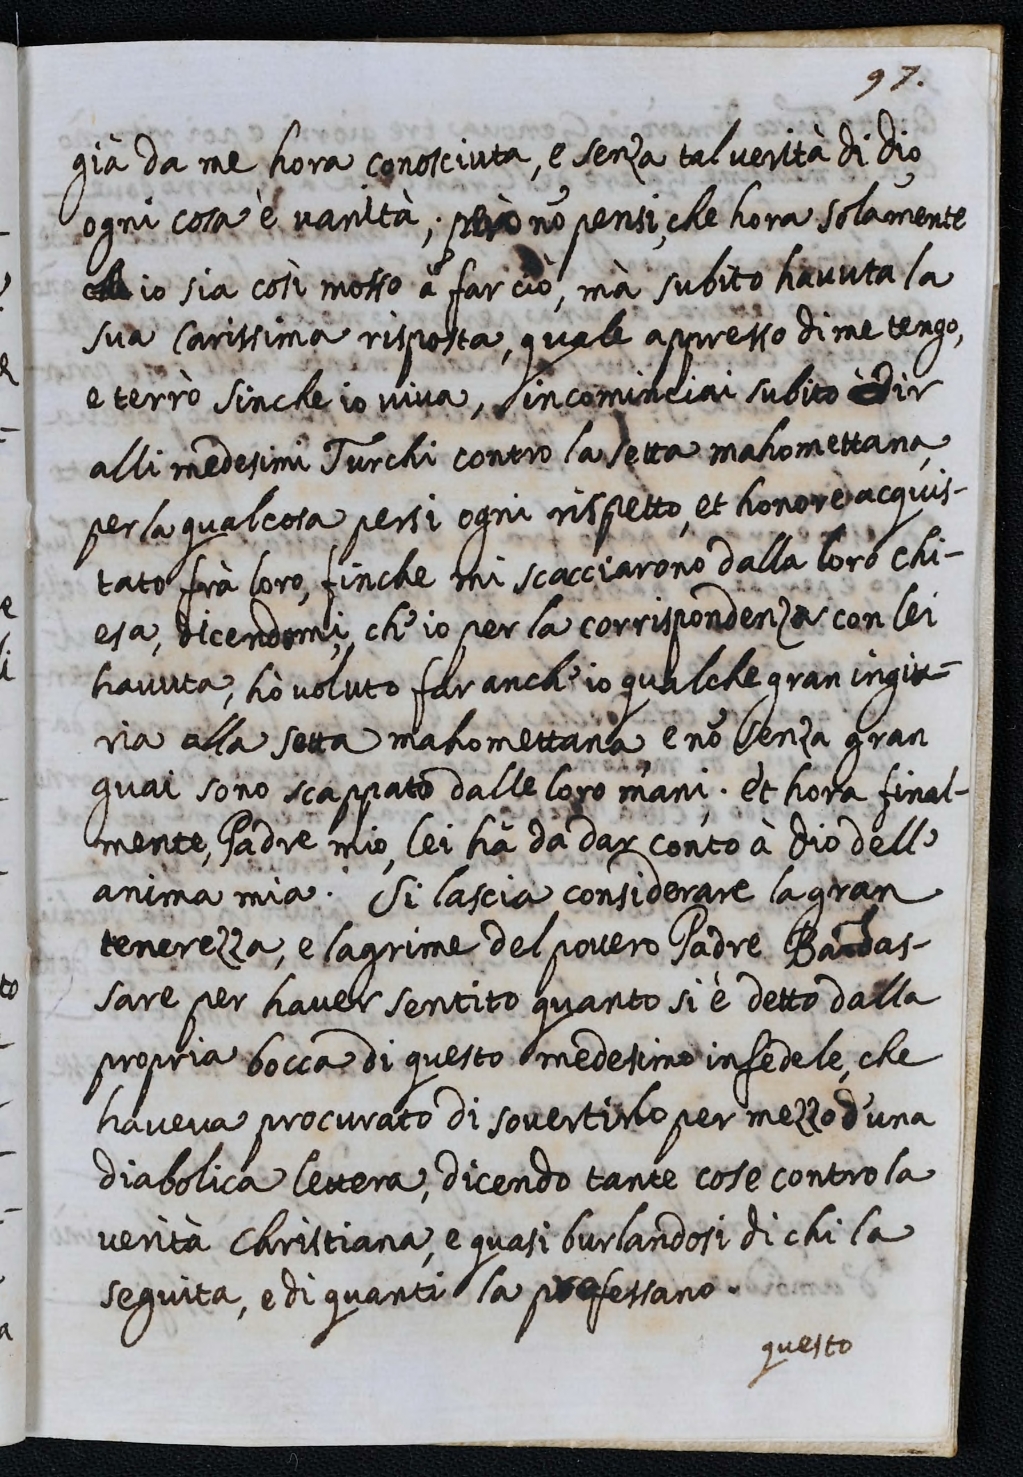 97.
già da me hora conosciuta, e senza tal verità di dio
ogni cosa è vanità, però nõ pensi, che hora solamente
ch io sia così mosso à far ciò, mà subito havuta la
sua carissima risposta, quale appresso di me tengo,
e terrò sinche io viva, incominciai subito à dir
alli medesimi Turchi contro la setta mahomettana,
per la qual cosa persi ogni rispetto, et honore acquis-
tato frà loro, finche mi scacciarono dalla loro chi-
esa, dicendomi, ch'io per la corrispondenza con lei
havuta, hò voluto far anch'io qualche gran ingiu=
ria alla setta mahomettana e nõ senza gran
guai sono scappato dalle loro mani. et hora final-
mente, Padre mio, lei hà da dar conto à dio dell'
anima mia. Si lascia considerare la gran
tenerezza, e lagrime del povero Padre Baldas-
sare per haver sentito quanto si è detto dalla
propria bocca di questo medesimo infedele, che
haveva procurato di sovertirlo per mezzo d'una
diabolica lettera, dicendo tante cose contro la
verità christiana, e quasi burlandosi di chi la
seguita, e di quanti la professano.
questo